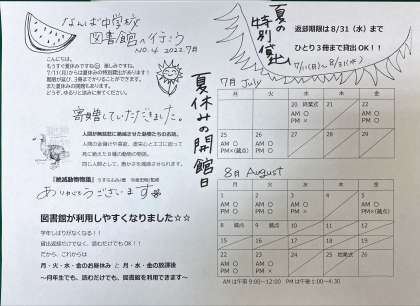 なんば中学校
図書館へ行こう
NO.4 2022.7月
こんにちは。
もうすぐ夏休みですね
7/11(月)からは夏休みの特別貸出があります!
期限が延び、3冊までかりることができます。
また夏休みの開館もあります。
寄贈していただきました。
人間が無慈悲に絶滅させた動物たちのお話。
『絶滅動物物語』
ありがとうございます
図書館が利用しやすくなりました☆☆
学年しばりがなくなる!!
貸出返却だけでなく、読むだけでもOK!!
だから、これからは
月・火・水・金のお昼休み と 月・水・金の放課後
~何年生でも、読むだけでも、図書館を利用できます~
夏の特別貸出
返却期限は8/31(水)まで
ひとり3冊まで貸出OK!!
7/11(月)~8/31(水)
夏休みの開館日
7月 July
月 火 水 木 金
20 終業式 21 22
AM ○ AM ○
PM ○ PM ○
25 26 27 28 29
AM ○ AM ○
PM×(蔵点) PM ○
8月 August
月 火 水 木 金
1 2 3 4 5
AM ○ AM ○ AM ○
PM ○ PM × PM×(蔵点)
8 9 10 11 12
15 16 17 18 19
22 23 24 25 始業式 26
AM ○
PM ○
AMは午前9:00~12:00 PMは午後1:00~4:30